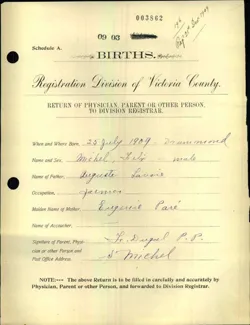 003862
09 03
Schedule A.
BIRTHS.
Registration Division of Victoria County.
RETURN OF PHYSICIAN, PARENT OR OTHER PERSON,
TO DIVISION REGISTRAR.
When and Where Born, 25 July 1909 Drummond
Name and Sex, Michel, - male
Name of Father, Lavoie
Occupation, farmer
Maiden Name of Mother, Eugenie Paré
Name of Accoucheur
Signature of Parent, Physi-
cian or Other Person and
Post Office Address. P.P.
St Michel
NOTE:— The above Return is to be filled carefully and accurately by
Physician, Parent or other Person, and forwarded to Division Registrar.